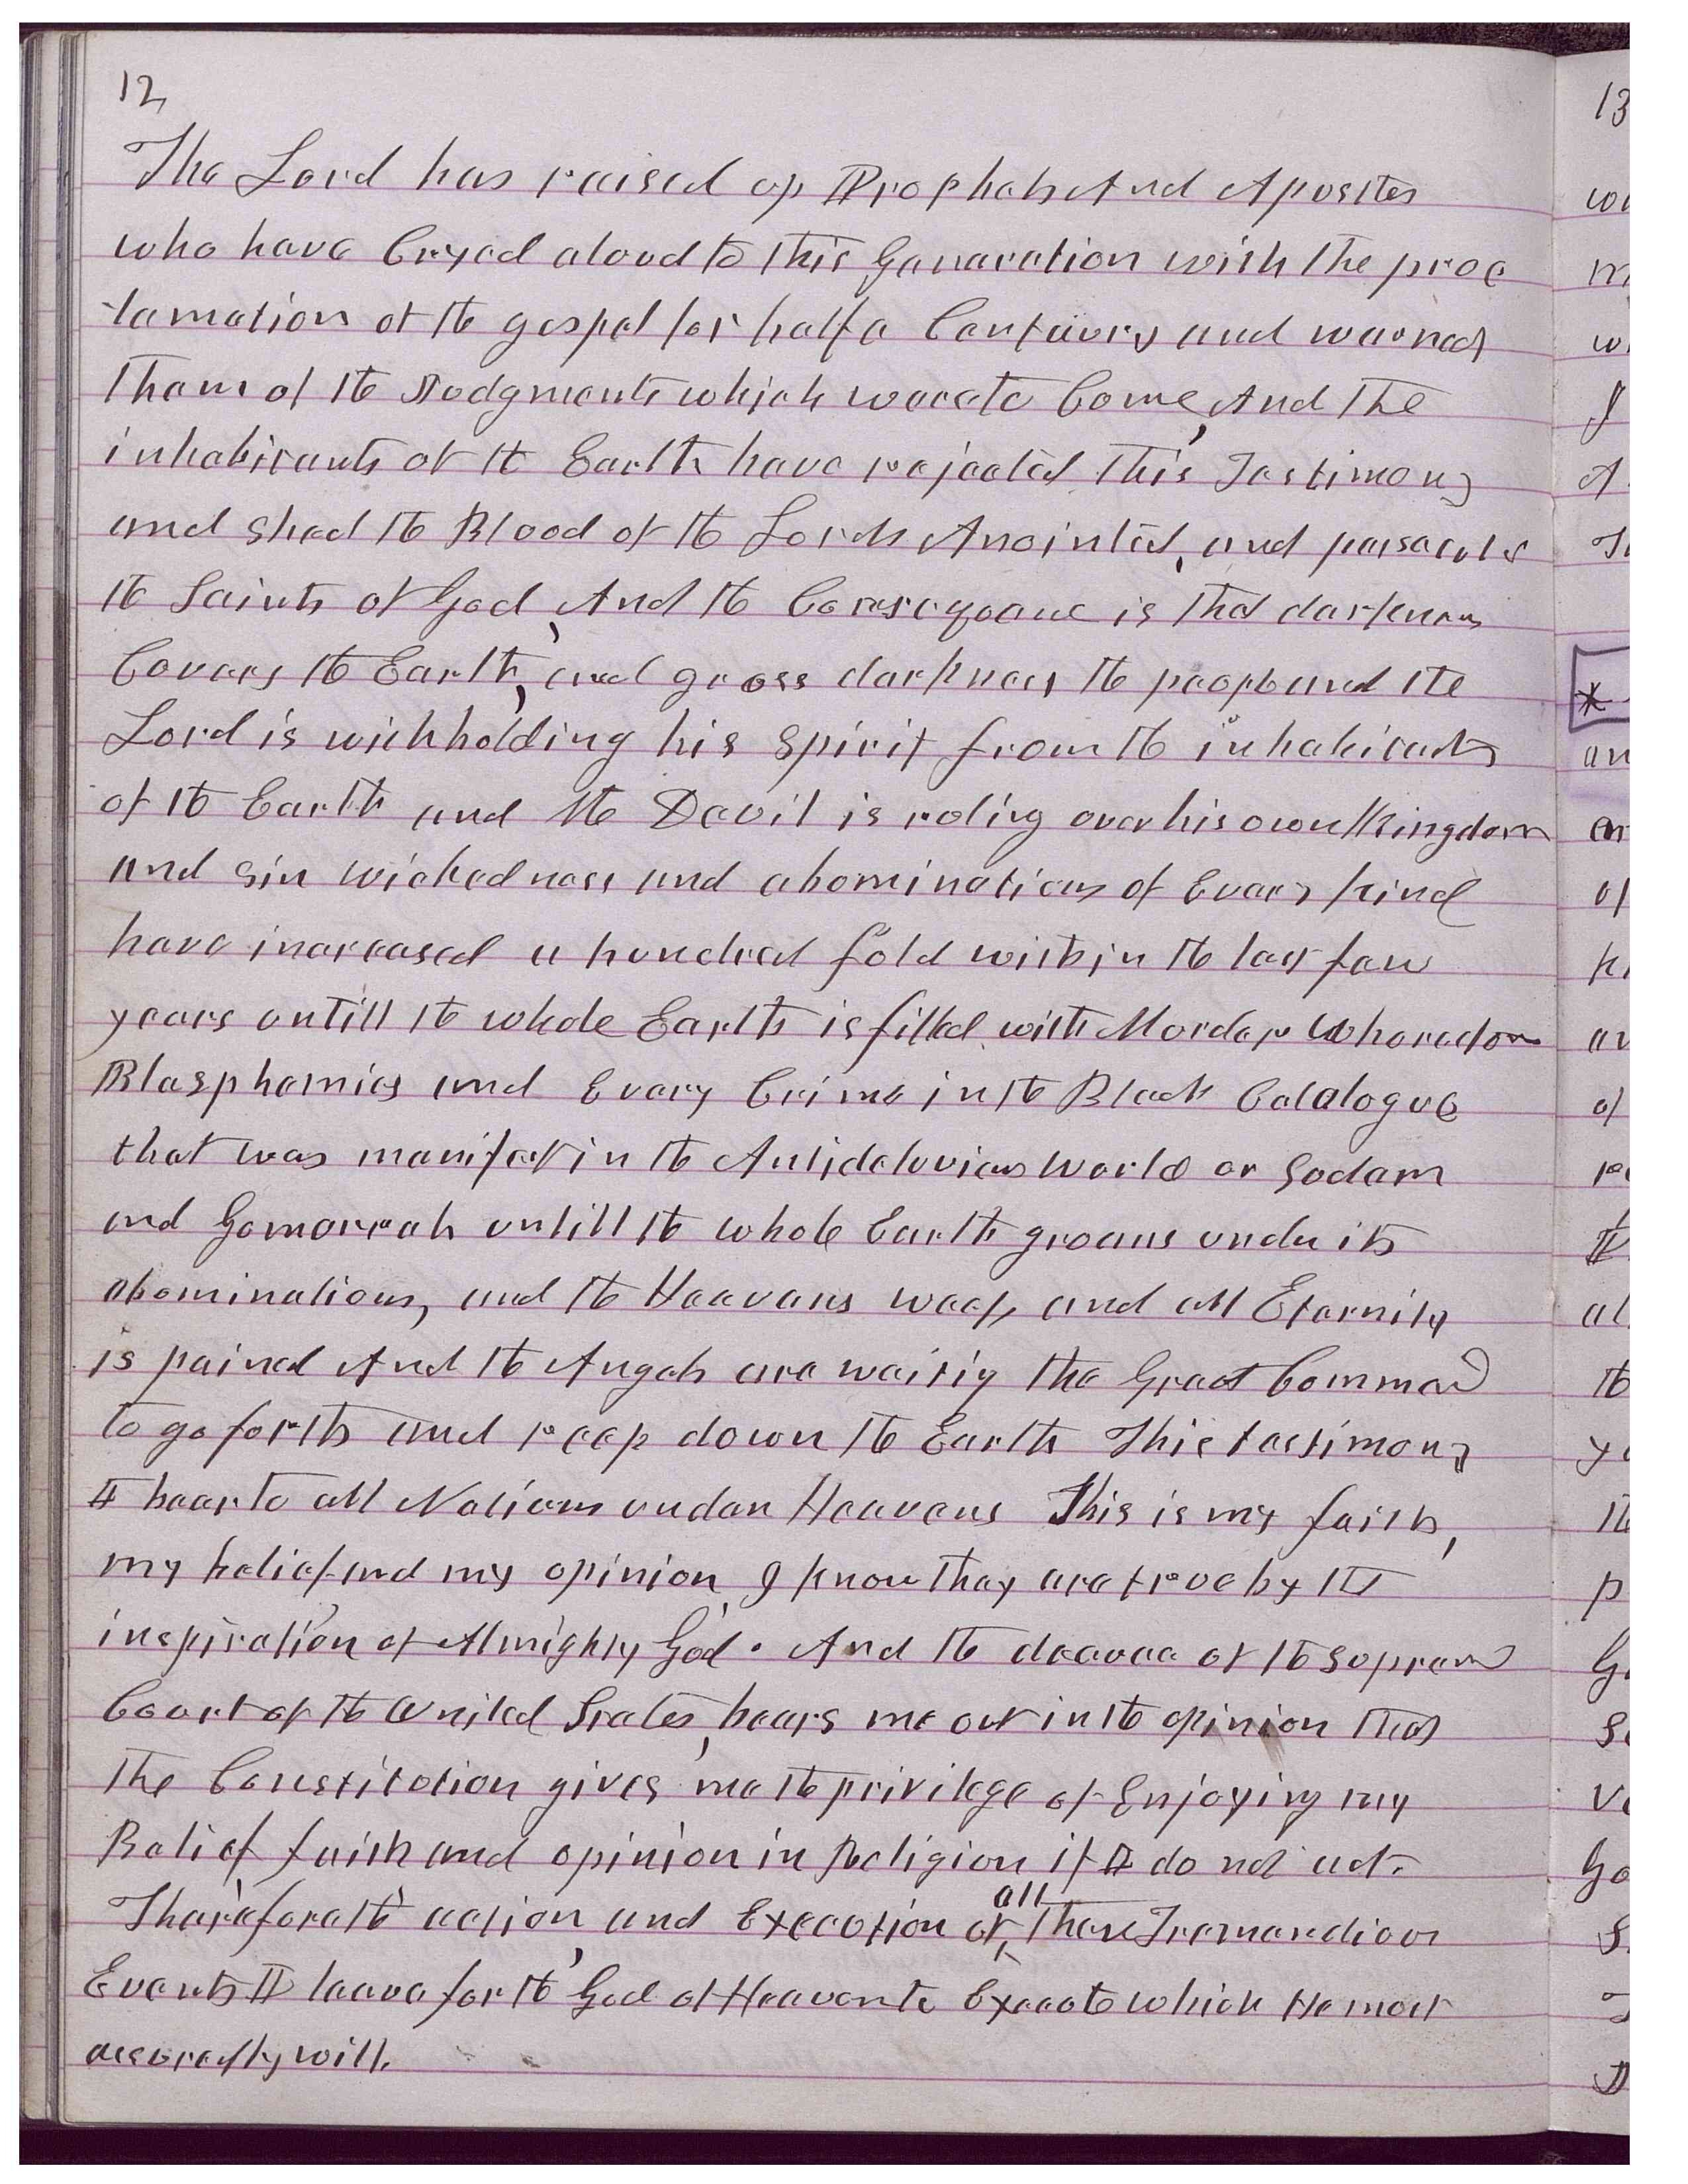 12
The Lord has raised up Prophets And Apostles
who have Cryed aloud to this Generation with the proc
lamation of the gospel for half a Century and warned
them of the Judgments which were to Come, And the
inhabitants of the Earth have rejected this Testimony
and shed the Blood of the Lords Anointed, and persecuted
the Saints of God, And the Consequence is that darkness
Covers the Earth, and gross darkness the people and the
Lord is withholding his spirit from the inhabitants
of the Earth and the Devil is ruling over his own Kingdom
and sin wickedness and abominations of Every kind
have increased a hundred fold within the last few
years untill the whole Earth is filled with Murder Whoredom
Blasphemies and Every Crime in the Black Catalogue
that was manifest in the Antideluvian World or Sodam
and Gomorrah untill the whole Earth groans under its
abominations, and the Heavens weep, and all Eternity
is pained And the Angels are waiting the Great Command
to go forth and reap down the Earth This testimony
I bear to all Nations under Heavens This is my faith,
my belief and my opinion, I know they are true by the
inspiration of Almighty God. And the decree of the Supreme
Court of the United States, bears me out in the opinion that
the Constitution gives me the privilege of Enjoying my
Belief faith and opinion in Religion if I do not act.
all
Therefore the action, and Execution of these Tremendious
Events I leave for the God of Heaven to Execute which He most
assuredly will.
13